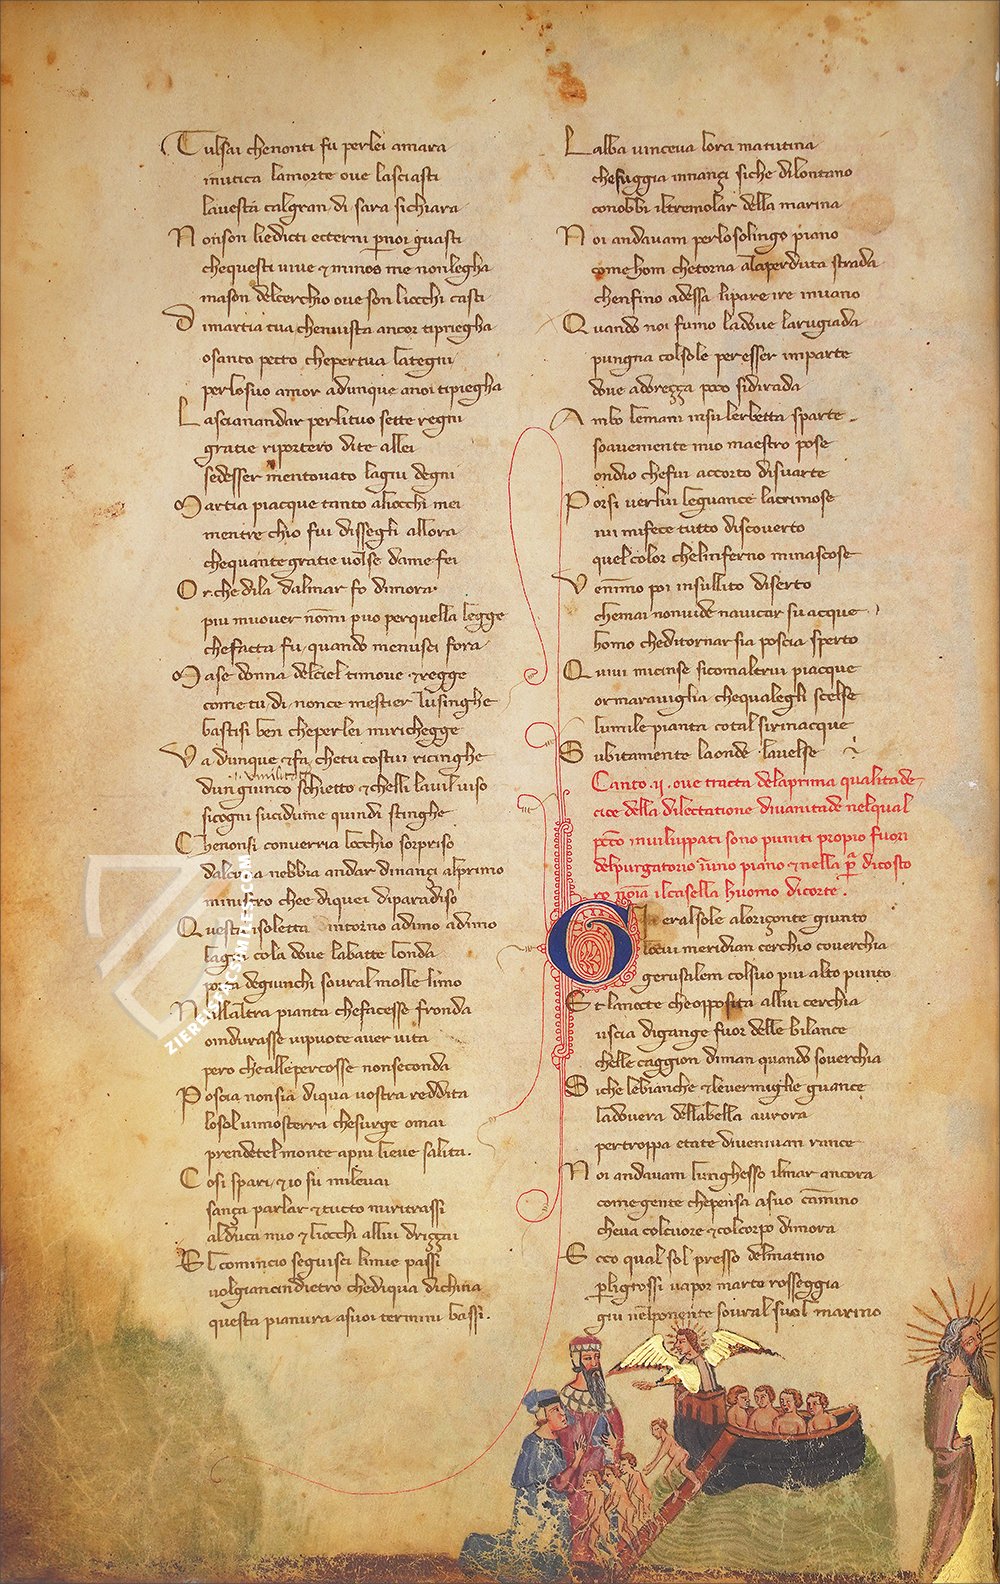 Tulsai chenonti fu perlei amara
inutica lamorte oue lasciasti
lauesta calgran di sara sichiara
Nonson liedicti etterni pernoi guasti
chequesti uiue & minos me nonlegha
mason delcerchio oue son liocchi casti
Dimartia tua chenuista ancor tipriegha
osanto pecto chepertua lategni
perlosuo amor adunque anoi tipiegha
Lascianandar perlituo sette regni
gratie riportero dite allei
sedesser mentouato lagiu degni
Martia piacque tanto aliocchi mei
mentre chio fui dissegli allora
chequante gratie uolse dame fei
Or che dila dalmar fo dimora
piu muouer nommi puo perquella legge
chefacta fu quando menusci fora
Mase donna delciel timoue & regge
come tu di nonce mestier lusinghe
bastisi ben cheperlei mirichegge
Va dunque & fa chetu costui ricinghe
dun giunco schietto & chelli laui luiso
sicogni sucidume quindi stinghe
Chenonsi conuerria locchio sorpriso
dalcuna nebbia andar dinançi alprimo
ministro chee diquei diparadiso
Questa isoletta intorno adimo adimo
laggiu cola doue labatte londa
porta degiunchi soural molle limo
Nullaltra pianta chefacesse fronda
oindurasse uipuote auer uita
pero cheallepercosse nonseconda
Poscia nonsia diqua uostra reddita
losol uimosterra chesurge omai
prendetel monte apiu lieue salita.
Cosi spari & io su mileuai
sança parlar & tucto miritrassi
alduca mio & liocchi allui drizzai
El comincio seguisci limie passi
uolgiancindietro chediqua dichina
questa pianura asuoi termini bassi.
Lalba uinceua lora matutina
chefuggia innançi siche dilontano
conobbi iltremolar della marina
Noi andauam perlosolingo piano
come hom chetorna alaperduta strada
chenfino adessa lipare ire inuano
Quando noi fumo ladoue larugiada
pungna colsole peresser inparte
doue adorezza poco sidirada
Ambo lemani insulerbetta sparte
soauemente mio maestro pose
ondio chefui accorto disuarte
Porsi uerlui leguance lacrimose
iui mifece tutto discouerto
quelcolor chelinferno minascose
Venimmo poi insullito diserto
chemai nonuide nauicar su acque
homo cheditornar sia poscia sperto
Quiui micinse sicomaltrui piacque
or marauiglia chequalegli scelse
lumile pianta cotal sirinacque
Subitamente laonde lauelse
Canto .ii. oue tracta delaprima qualitade
cioe della dilectatione diuanitade nelqual
peccato inuiluppati sono puniti propio fuori
delpurgatorio in uno piano & nella dicosto
ro ilcasella huomo dicorte.
Gia eralsole aloriçonte giunto
locui meridian cerchio couerchia
gerusalem colsuo piu alto punto
Et lanocte cheopposita allui cerchia
uscia digange fuor delle bilance
chelle caggion diman quando souerchia
Siche lebianche & leuermighe guance
ladouera dellabella aurora
pertroppa etate diueniuan rance
Noi andauam lunghesso ilmar ancora
come gente chepensa asuo cammino
cheua colcuore & colcorpo dimora
Ecco qual sol presso delmatino
perligrossi uapor marte rosseggia
giu nelponente soural suol marino
ZIEREIFACSIMILES.COM